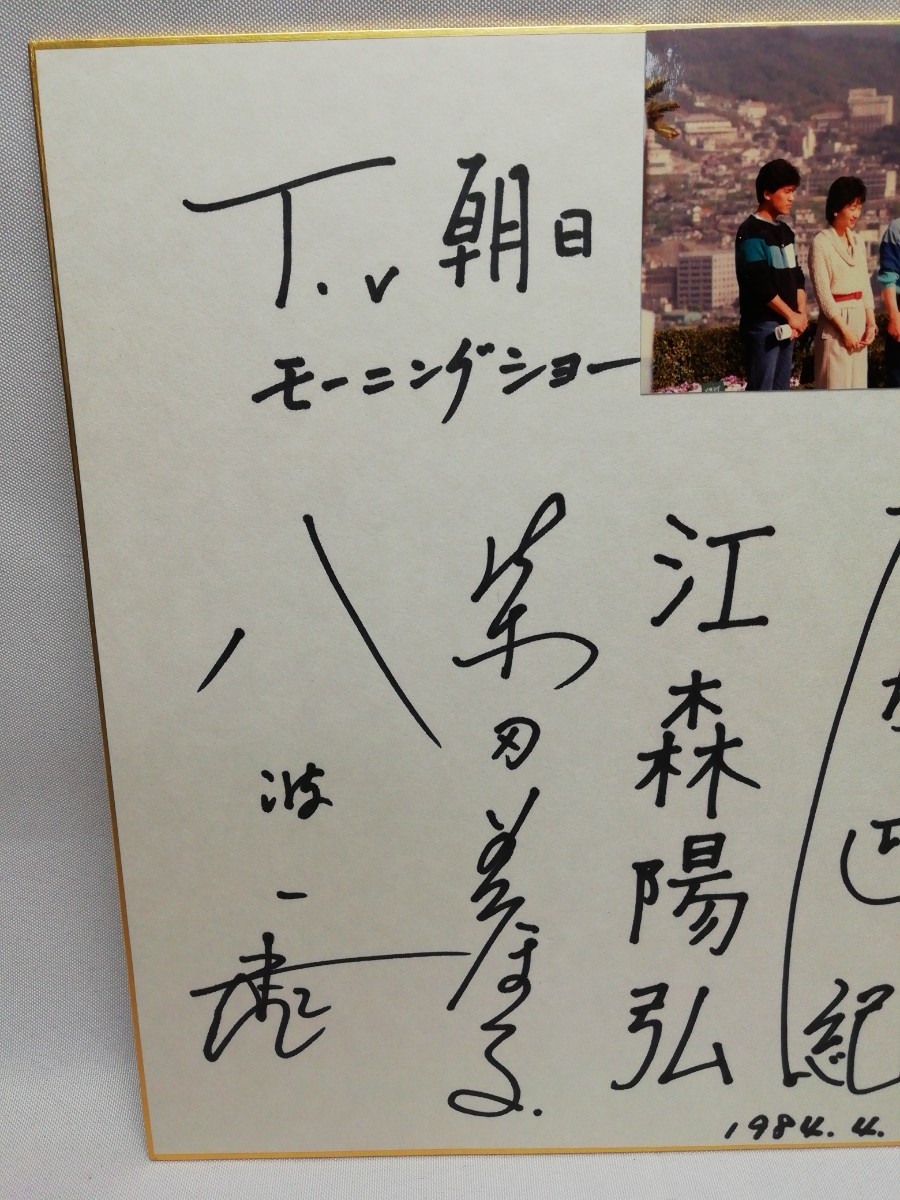 T.v 朝日
モーニングショー
江森陽弘
柴田美保子
八波一起
紀
1984.4.